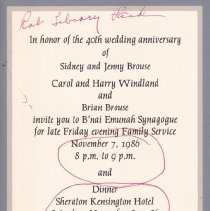 Rob Library Park
In honor of the 40th wedding anniversary
of
Sidney and Jenny Brouse
Carol and Harry Windland
and
Brian Brouse
invite you to B'nai Emunah Synagogue
for late Friday evening Family Service
November 7, 1986
8 p.m. to 9 p.m.
and
Dinner
Sheraton Kensington Hotel